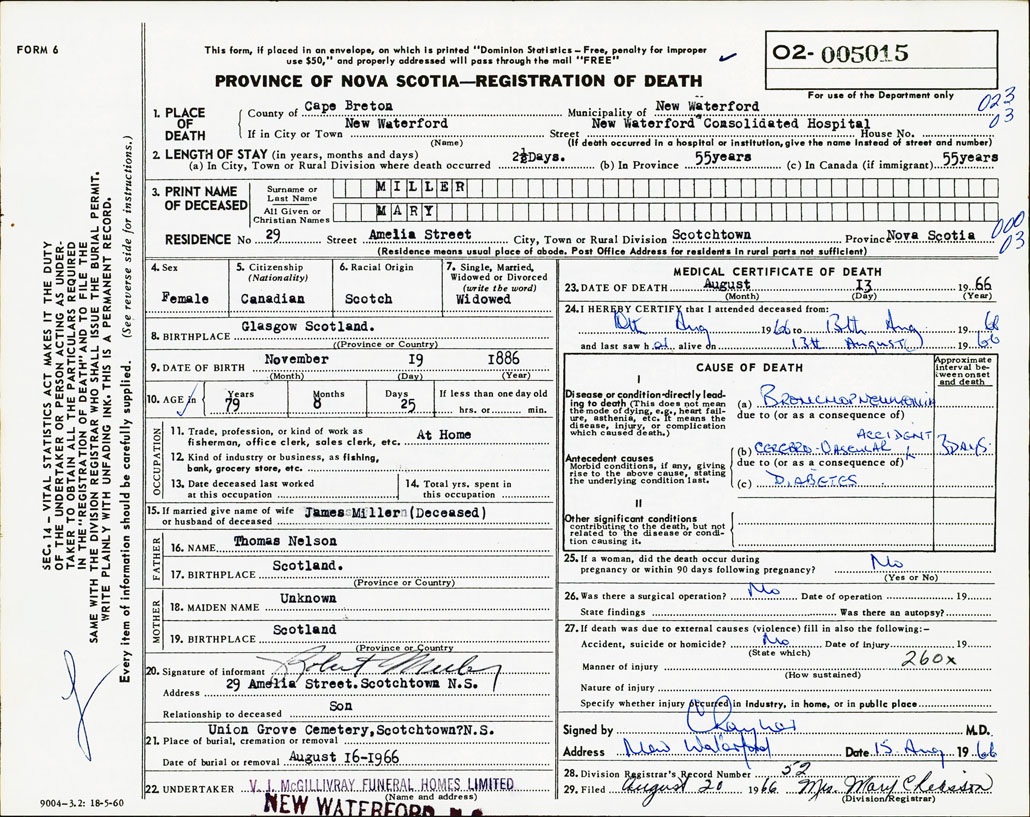 FORM 6
This form, if placed in an envelope, on which is printed "Dominion Statistics – Free, penalty for improper
use $50," and properly addressed will pass through the mail "FREE"
PROVINCE OF NOVA SCOTIA—REGISTRATION OF DEATH
02- 005015
For use of the Department only
023
03
1. PLACE OF DEATH
County of Cape Breton Municipality of New Waterford
If in City or Town New Waterford Street New Waterford Consolidated Hospital House No.
(Name) (If death occurred in a hospital or institution, give the name instead of street and number)
2. LENGTH OF STAY (in years, months and days)
(a) In City, Town or Rural Division where death occurred 2½Days. (b) In Province 55years (c) In Canada (if immigrant) 55years
3. PRINT NAME OF DECEASED
Surname or Last Name MILLER
All Given or Christian Names MARY
000
03
RESIDENCE No 29 Street Amelia Street City, Town or Rural Division Scotchtown Province Nova Scotia
(Residence means usual place of abode. Post Office Address for residents in rural parts not sufficient)
4. Sex
Female
5. Citizenship
(Nationality)
Canadian
6. Racial Origin
Scotch
7. Single, Married, Widowed or Divorced
(write the word)
Widowed
8. BIRTHPLACE Glasgow Scotland.
((Province or Country)
9. DATE OF BIRTH November 19 1886
(Month) (Day) (Year)
10. AGE in Years 79 Months 8 Days 25 If less than one day old
hrs. or min.
OCCUPATION
11. Trade, profession, or kind of work as
fisherman, office clerk, sales clerk, etc. At Home
12. Kind of industry or business, as fishing,
bank, grocery store, etc.
13. Date deceased last worked
at this occupation
14. Total yrs. spent in
this occupation
15. If married give name of wife
or husband of deceased James Miller (Deceased)
FATHER
16. NAME Thomas Nelson
17. BIRTHPLACE Scotland.
(Province or Country)
MOTHER
18. MAIDEN NAME Unknown
19. BIRTHPLACE Scotland
(Province or Country
20. Signature of informant Robert Miller
Address 29 Amelia Street.Scotchtown N.S.
Relationship to deceased Son
Union Grove Cemetery,Scotchtown?N.S.
21. Place of burial, cremation or removal
Date of burial or removal August 16-1966
22. UNDERTAKER V. J. McGILLIVRAY FUNERAL HOMES LIMITED
(Name and address)
NEW WATERFORD, N.S.
9004-3.2: 18-5-60
MEDICAL CERTIFICATE OF DEATH
23. DATE OF DEATH August 13 1966
(Month) (Day) (Year)
24. I HEREBY CERTIFY that I attended deceased from:
Aug 1966 to 13th Aug 1966
and last saw her alive on 13th August 1966
CAUSE OF DEATH
Approximate interval between onset and death
I
Disease or condition directly leading to death (This does not mean
the mode of dying, e.g., heart failure, asthenia, etc. It means the
disease, injury, or complication
which caused death.)
(a) BRONCHOPNEUMONIA
due to (or as a consequence of)
Antecedent causes
Morbid conditions, if any, giving
rise to the above cause, stating
the underlying condition last.
(b) CEREBRO-VASCULAR ACCIDENT 3 DAYS.
due to (or as a consequence of)
(c) DIABETES
II
Other significant conditions
contributing to the death, but not
related to the disease or condition causing it.
25. If a woman, did the death occur during
pregnancy or within 90 days following pregnancy? No
(Yes or No)
26. Was there a surgical operation? No Date of operation 19
State findings Was there an autopsy?
27. If death was due to external causes (violence) fill in also the following:–
Accident, suicide or homicide? No Date of injury 19
(State which)
Manner of injury 260x
(How sustained)
Nature of injury
Specify whether injury occurred in industry, in home, or in public place
Signed by M.D.
Address New Waterford Date 15 Aug 1966
28. Division Registrar's Record Number 52
29. Filed August 20 1966 Mrs. Mary Chiasson
(Division Registrar)
SEC. 14 – VITAL STATISTICS ACT MAKES IT THE DUTY
OF THE UNDERTAKER OR PERSON ACTING AS UNDER-
TAKER TO OBTAIN ALL THE PARTICULARS REQUIRED
IN THE "REGISTRATION OF DEATH" AND TO FILE THE
SAME WITH THE DIVISION REGISTRAR WHO SHALL ISSUE THE BURIAL PERMIT.
WRITE PLAINLY WITH UNFADING INK. THIS IS A PERMANENT RECORD.
Every item of information should be carefully supplied. (See reverse side for instructions.)